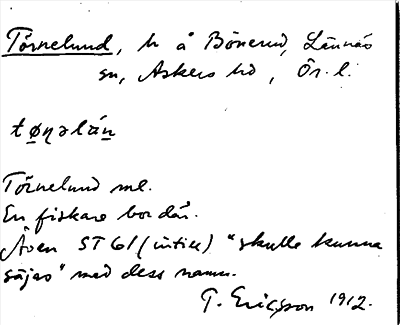 Törnelund, h å Bönerud, Lännäs
sn, Askers hd, Ör. l.
tøṇəlán
Törnelund ml.
En fiskare bor där.
Även ST 61 (intill) "skulle kunna
säjas" med dess namn.
T. Ericsson 1912.